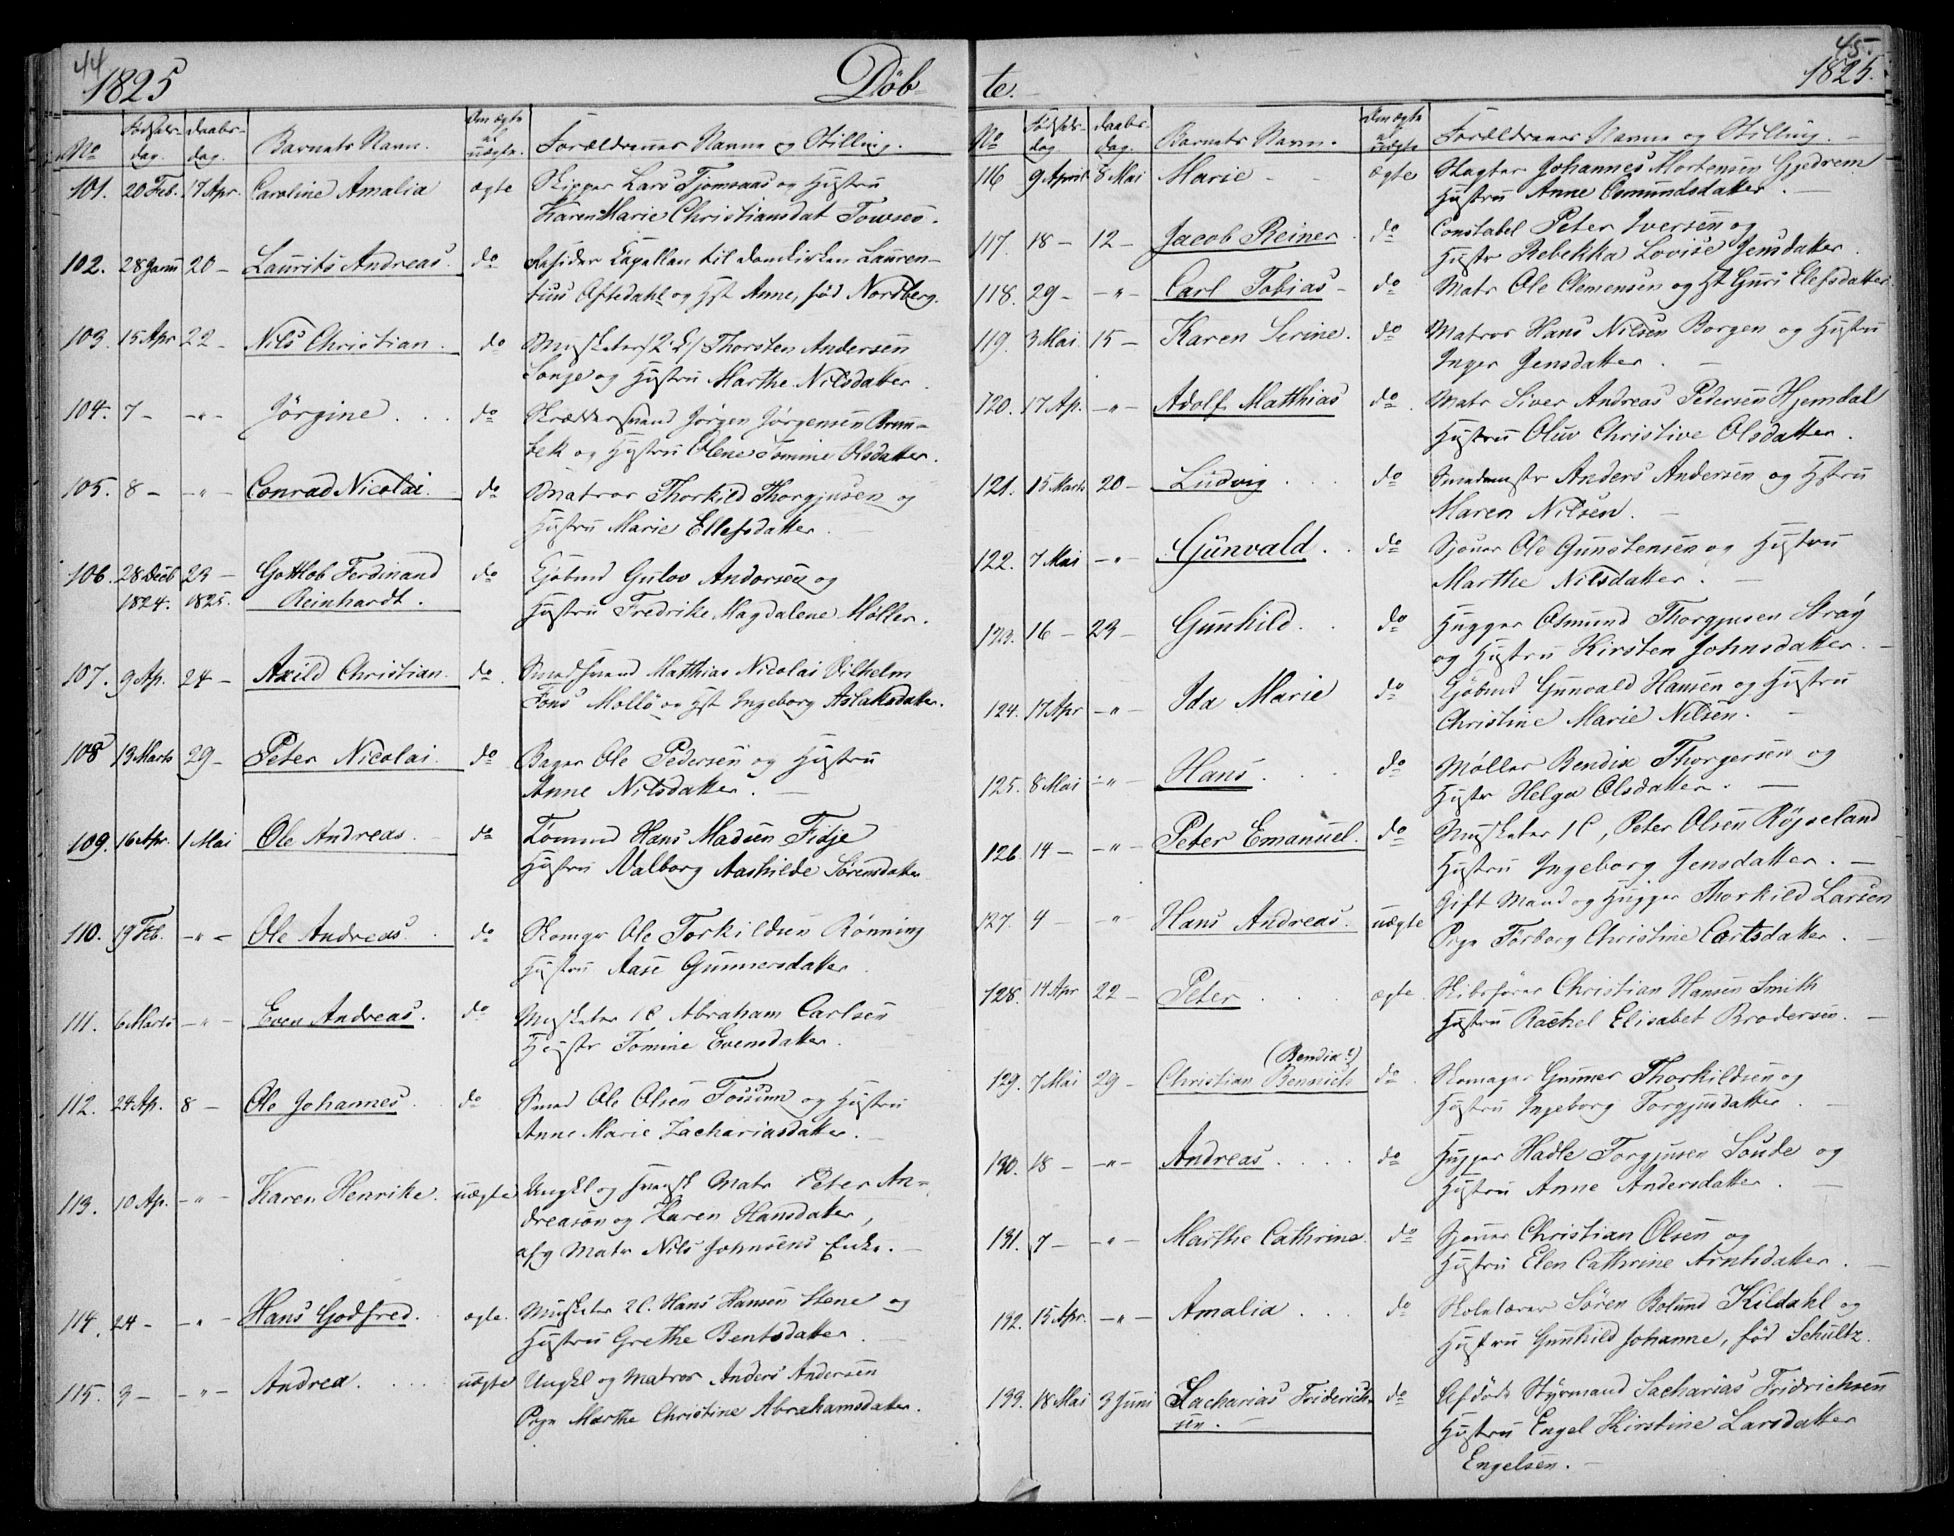 44
1825
Døb
No
Fødsels-
dag.
Daabs-
dag.
Barnets Navn.
Om ægte
el
uægte.
Forældrenes Navne og Stilling.
101. 20 Feb. 17 Apr. Caroline Amalia ægte Skipper Lars Tjomsaas og Hustru
Karen Marie Christiansdat Towsen.
102. 28 Janu 20 – Laurits Andreas. do Resider Kapellan til Domkirken Lauren-
tius Oftedahl og Hst Anne, fød Nordberg.
103. 15 Apr 22 – Nils Christian. do Musketer Thorsten Andersen
Songe og Hustru Marthe Nilsdatter.
104. 7 – – " – Jørgine . . . do Skræddersvend Jørgen Jørgensen Brun-
bek og Hustru Olene Tomine Olsdatter.
105. 8 – – " – Conrad Nicolai. do Matros Thorkild Thorgjusen og
Hustru Marie Ellefsdatter.
106. 28 Decb 23 – Gottlob Ferdinand do Kjøbmd Gulov Andersen og
1824. 1825. Reinhardt. Hustru Fredrike Magdalene Møller.
107. 9 Ap. 24 – Axild Christian. do Smedsvend Matthias Nicolai Vilhelm
Fons Mollø og Hst Ingeborg Aslaksdatter.
108 13 Marts 29 – Peter Nicolai. do Bager Ole Pedersen og Hustru
Anne Nilsdatter. –
109. 16 Apr. 1 Mai Ole Andreas. do Tømmd Hans Madsen Fidje
Hustru Valborg Aashilde Sørensdatter
110. 19 Feb. – " – Ole Andreas. do Skomgr Ole Torkildsen Rønning
Hustru Aase Gunnersdatter.
111. 6 Marts – " – Even Andreas. do Musketer 1C Abraham Carlsen
Hustr Tomine Evensdatter.
112. 24 Ap. 8 – Ole Johannes. do Smed Ole Olsen Fossum og Hustru
Anne Marie Zachariasdatter. –
113. 10 Ap. – " – Karen Henrike. uægte Ungkl og svensk Matr Peter An-
dreason og Karen Hansdatter,
afg Matr Nils Johnsens Enke. –
114. 24 – – " – Hans Godfred. ægte. Musketer 2C. Hans Hansen Stene og
Hustru Grethe Bentsdatter.
115. 3 – – " – Andrea. . . . uægte Ungkl og Matros Anders Andersen
Pige Marthe Christine Abrahamsdatter.
45.
1825.
te.
No
Fødsels-
dag.
Daabs-
dag.
Barnets Navn.
Om ægte
el
uægte
Forældrenes Navne og Stilling. –
116 9 April 8 Mai Marie – – ægte Slagter Johannes Mortensen Gjedrem
Hustru Anne Osmundsdatter. –
117. 18 – 12 – Jacob Reiner. do Constabel Peter Iversen og
Hustr Rebekka Lovise Jensdatter
118. 29 – – " – Carl Tobias – do Matr Ole Clemensen og Ht Guri Elefsdatter
119. 3 Mai 15 – Karen Serine. do Matros Hans Nilsen Borgen og Hustru
Inger Jensdatter. –
120. 17 Ap. – " – Adolf Matthias do Matr Siver Andreas Pedersen Hjemdal
Hustru Oluv Christive Olsdatter.
121. 15 Marts 20 – Ludvig . . . do Smedmstr Anders Andersen og Hstru
Maren Nilsen. –
122. 7 Mai – " – Gunvald. . do Sjouer Ole Gunstensen og Hustru
Marthe Nilsdatter. –
123. 16 – 23 – Gunhild. . do Hugger Osmund Thorgjusen Straÿ
og Hustru Kirsten Johnsdatter. –
124. 17 Apr – " – Ida Marie do Kjøbmd Gunvald Hansen og Hustru
Christine Marie Nilsen. –
125. 8 Mai – " – Hans. . . do Møller Bendix Thorgersen og
Hustr Helga Olsdatter. –
126. 14 – – " – Peter Emanuel. do Musketer 1C, Peter Olsen Røjseland
Hustru Ingeborg Jensdatter. –
127. 4 – – " – Hans Andreas. uægte Gift Mand og Hugger Thorkild Larsen
Pige Torborg Christine Carlsdatter. –
128. 14 Apr 22 – Peter . . . ægte. Skibsfører Christian Hansen Smith
Hustru Rachel Elisabet Brodersen. –
(Bendix?)
129. 7 Mai 29 – Christian Bennich do. Skomager Gunner Thorkildsen og
Hustru Ingeborg Torgjusdatter. –
130. 18 – – " – Andreas. . . . do Hugger Hadle Torgjusen Soude og
Hustru Anne Andersdatter. –
131. 7 – – " – Marthe Cathrine do Sjouer Christian Olsen og
Hustru Elen Cathrine Arntsdatter. –
132. 15 Apr. – " – Amalia . . . do Skolelærer Søren Bolund Kildahl og
Hustru Gunhild Johanne, fød Schultz.
133. 18 Mai 3 Juni Zacharias Friderich- do Afdøde Styrmand Zacharias Fridrichsen
sen. – Hustru Engel Kirstine Larsdatter
Engelsen. –